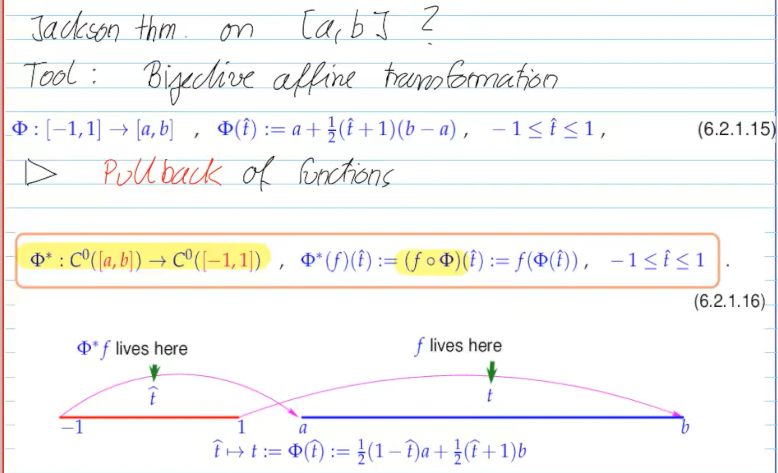 Jackson thm. on [a,b] ?
Tool : Bijective affine transformation
Φ : [−1,1] → [a,b] , Φ(t̂) := a + ½(t̂ + 1)(b − a) , −1 ≤ t̂ ≤ 1 , (6.2.1.15)
▷ Pullback of functions
Φ* : C⁰([a,b]) → C⁰([−1,1]) , Φ*(f)(t̂) := (f ∘ Φ)(t̂) := f(Φ(t̂)) , −1 ≤ t̂ ≤ 1 .
(6.2.1.16)
Φ*f lives here f lives here
t̂ t
−1 1 a b
t̂ ↦ t := Φ(t̂) := ½(1 − t̂)a + ½(t̂ + 1)b